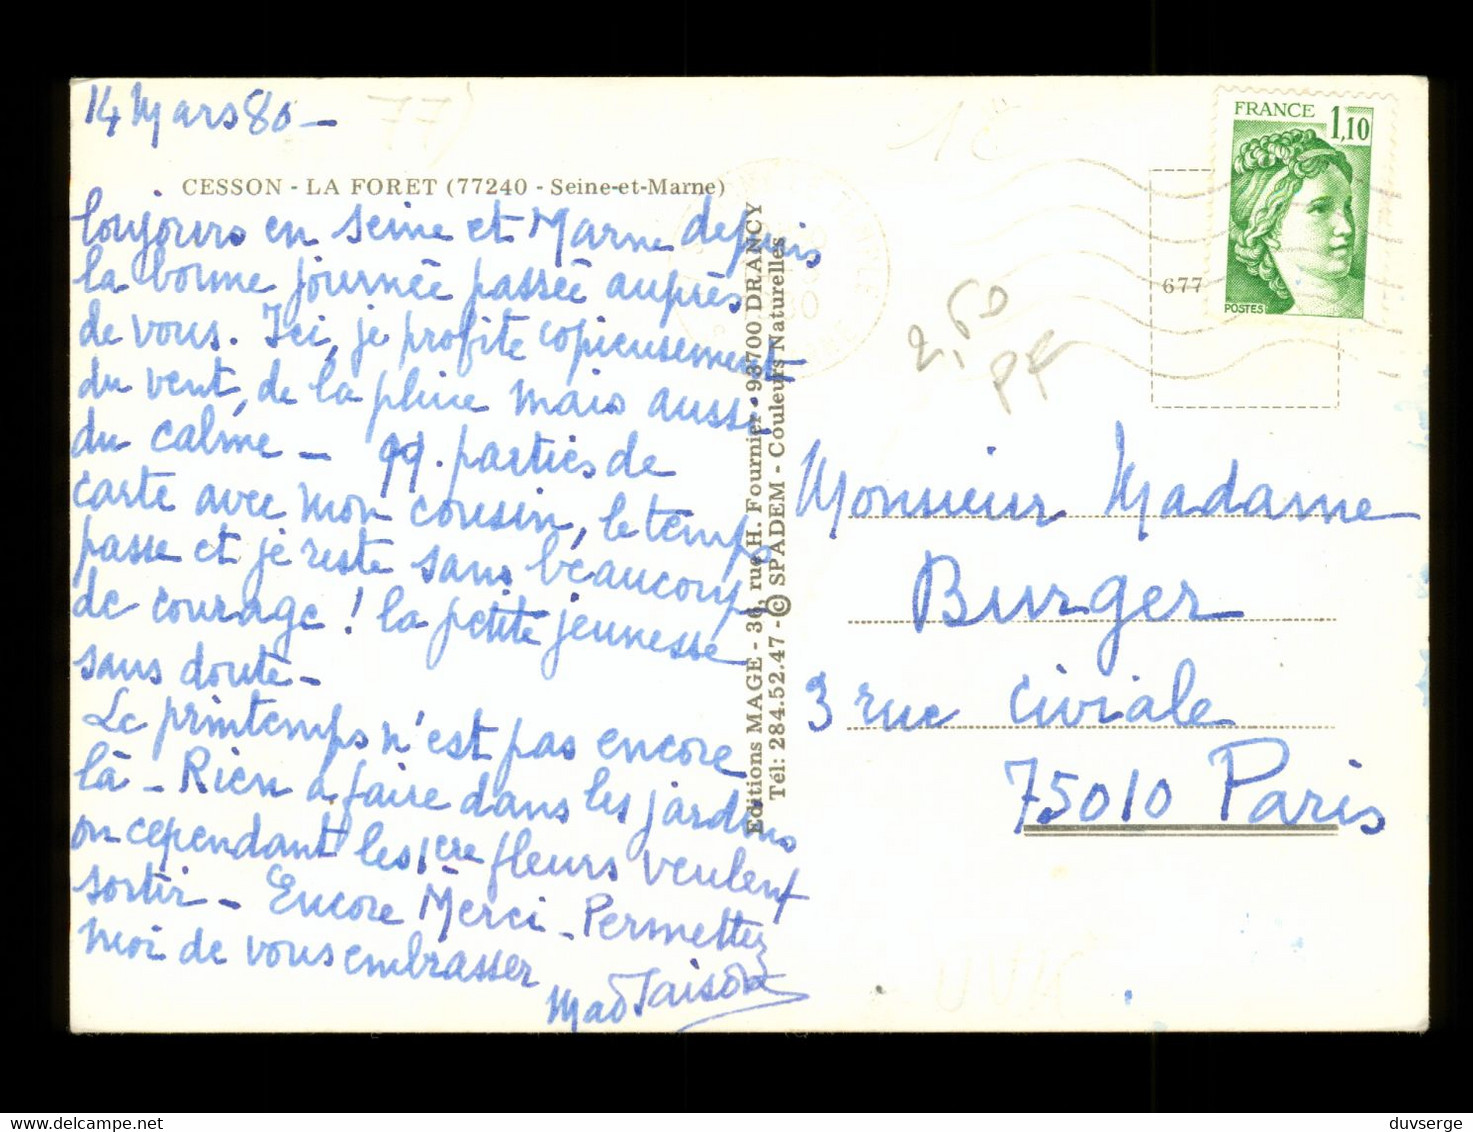 14 Mars 80 -
77)
CESSON - LA FORET (77240 - Seine-et-Marne)
Toujours en Seine et Marne depuis
la bonne journée passée auprès
de vous. Ici, je profite copieusement
du vent, de la pluie mais aussi
du calme - 99. parties de
carte avec mon cousin, le temps
passe et je reste sans beaucoup
de courage ! la petite jeunesse
sans doute -
Le printemps n'est pas encore
là - Rien à faire dans les jardins
ou cependant les 1ere fleurs veulent
sortir - Encore Merci - Permettez
moi de vous embrasser
Editions MAGE - 36, rue H. Fournier - 93700 DRANCY
Tél: 284.52.47 - © SPADEM - Couleurs Naturelles
FRANCE 1,10
POSTES
677
2,60
PF
Monsieur Madame
Burger
3 rue Civiale
75010 Paris
delcampe.net
duvserge